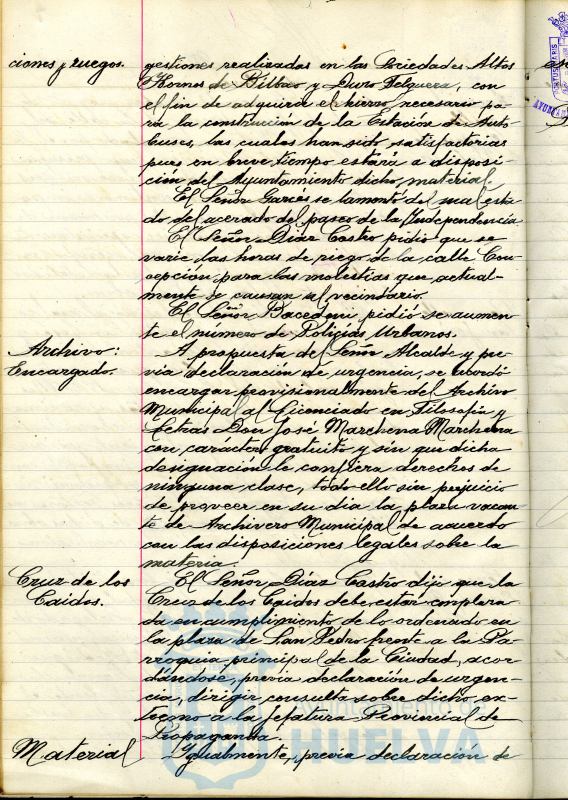 ciones y ruegos.
gestiones realizadas en las Sociedades Altos
Hornos de Bilbao y Duro Felguera, con
el fin de adquirir el hierro necesario pa-
ra la construcción de la Estación de Auto-
buses, las cuales han sido satisfactorias
pues en breve tiempo estará a disposi-
ción del Ayuntamiento dicho material.
El Señor Garcés se lamentó del mal esta-
do del acerado del paseo de la Independencia
El Señor Díaz Castro pidió que se
varíe las horas de riego de la calle Con-
cepción para las molestias que actual-
mente se causan al vecindario.
El Señor pidió se aumen-
te el número de Policías Urbanos.
Archivo:
Encargado.
A propuesta del Señor Alcalde y pre-
via declaración de urgencia, se acordó
encargar provisionalmente del Archivo
Municipal al Licenciado en Filosofía y
Letras Don José Marchena Marchena
con carácter gratuito y sin que dicha
designación le confiera derechos de
ninguna clase, todo ello sin perjuicio
de proveer en su día la plaza vacan-
te de Archivero Municipal de acuerdo
con las disposiciones legales sobre la
materia.
Cruz de los
Caidos.
El Señor Díaz Castro dijo que la
Cruz de los Caidos debe estar emplaza-
da en cumplimiento de lo ordenado en
la plaza de San Pedro frente a la Pa-
rroquia principal de la Ciudad, acor-
dándose, previa declaración de urgen-
cia, dirigir consulta sobre dicho ex-
tremo a la Jefatura Provincial de
Propaganda.
Material
Igualmente, previa declaración de
Ayuntamiento de
HUELVA